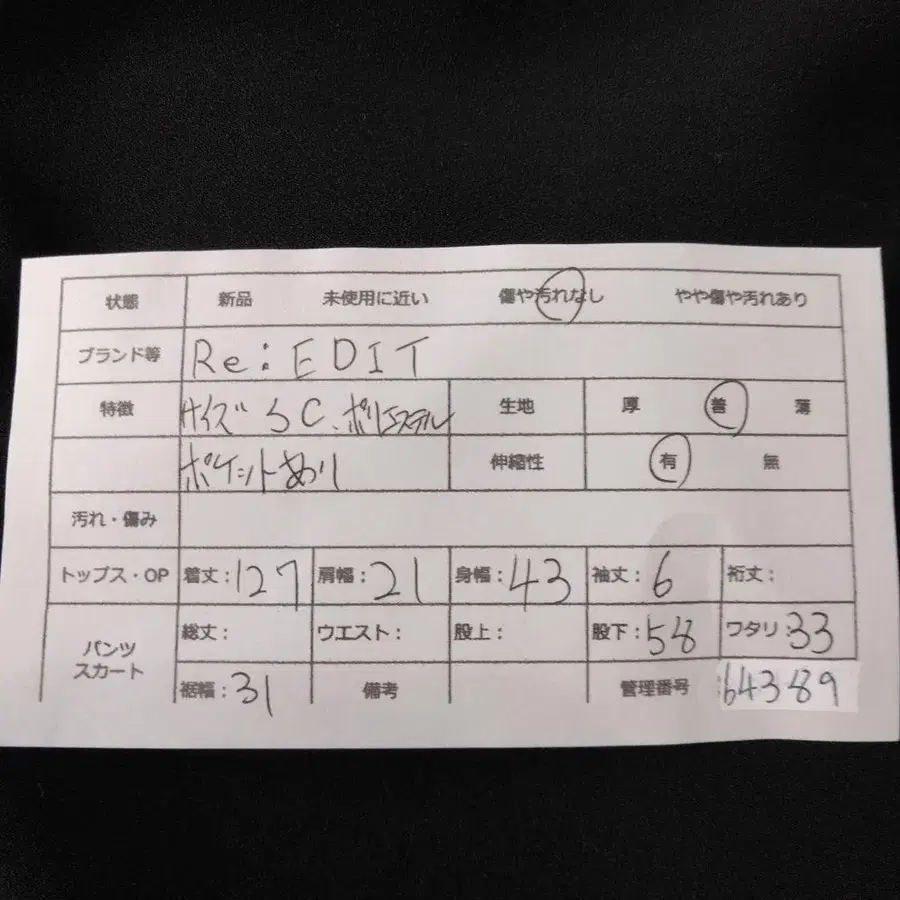 状態 新品 未使用に近い 傷や汚れなし やや傷や汚れあり
ブランド等 Re:EDIT
特徴 サイズ SC、ポリエステル 生地 厚 普 薄
ポケットあり 伸縮性 有 無
汚れ・傷み
トップス・OP 着丈:127 肩幅:21 身幅:43 袖丈:6 裄丈:
パンツ スカート 総丈: ウエスト: 股上: 股下:58 ワタリ:33
裾幅:31 備考 管理番号 64389